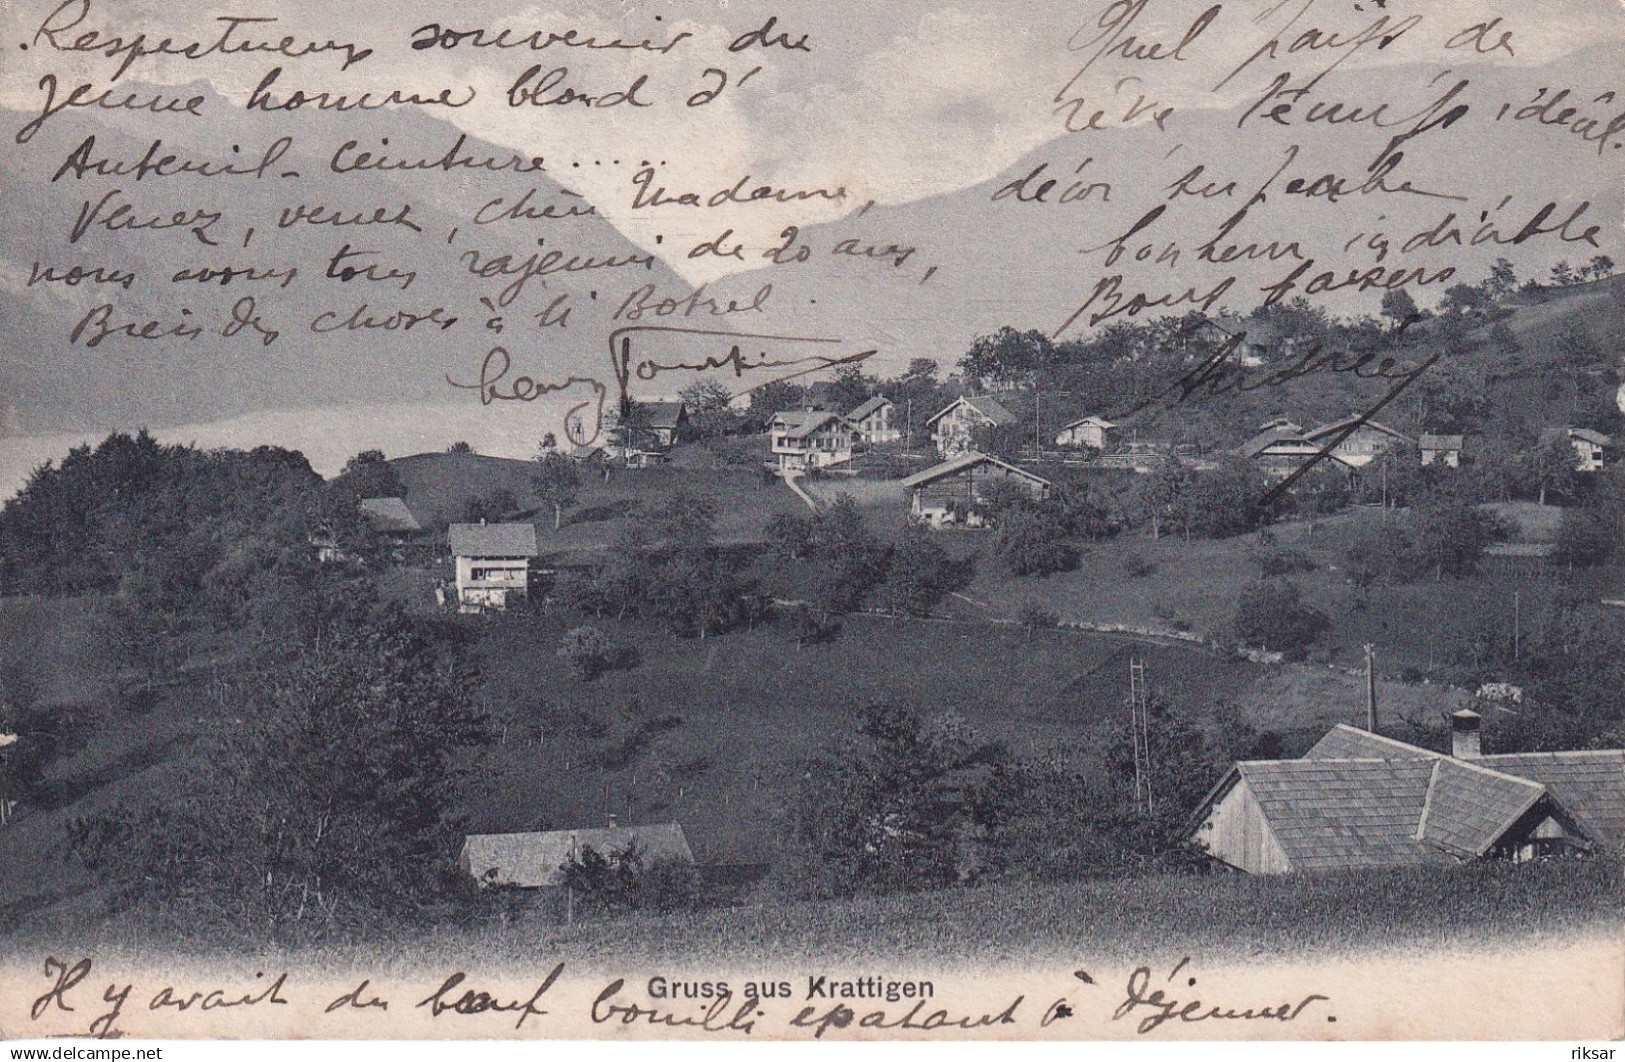 Respectueux souvenir du
jeune homme blond d'
Auteuil-Ceinture.....
Venez, venez, chère Madame,
nous avons tous rajeuni de 20 ans,
Bien des choses à
Botrel.
Quel pays de
rêve temps idéal.
décor superbe,
bonheur indicible
Bons baisers
Audrey
Gruss aus Krattigen
Il y avait du bœuf bouilli épatant à déjeuner.